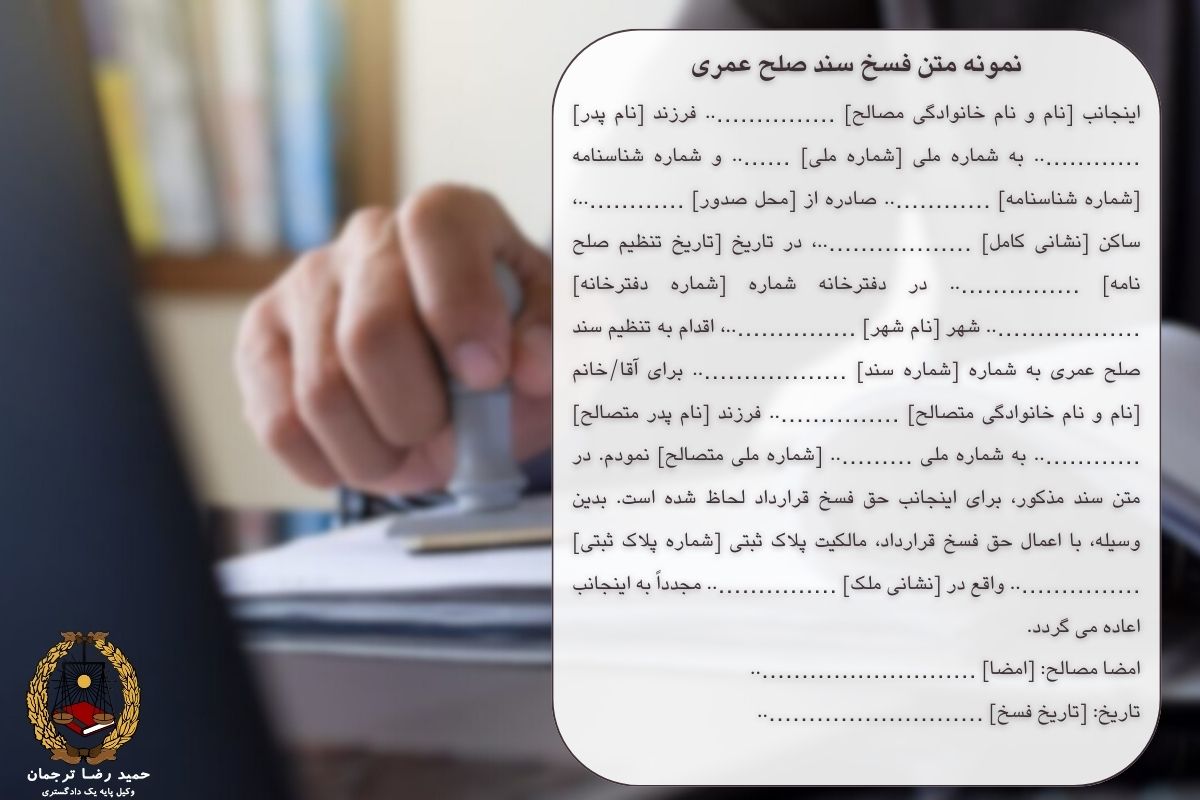 نمونه متن فسخ سند صلح عمری
اینجانب [نام و نام خانوادگی مصالح] ................. فرزند [نام پدر]
.............. به شماره ملی [شماره ملی] ........ و شماره شناسنامه
[شماره شناسنامه] .............. صادره از [محل صدور] ..............،
ساکن [نشانی کامل] ....................، در تاریخ [تاریخ تنظیم صلح
نامه] ................. در دفترخانه شماره [شماره دفترخانه]
.................... شهر [نام شهر] .................، اقدام به تنظیم سند
صلح عمری به شماره [شماره سند] .................... برای آقا/خانم
[نام و نام خانوادگی متصالح] ................. فرزند [نام پدر متصالح]
.............. به شماره ملی ........... [شماره ملی متصالح] نمودم. در
متن سند مذکور، برای اینجانب حق فسخ قرارداد لحاظ شده است. بدین
وسیله، با اعمال حق فسخ قرارداد، مالکیت پلاک ثبتی [شماره پلاک ثبتی]
................. واقع در [نشانی ملک] ................. مجدداً به اینجانب
اعاده می گردد.
امضا مصالح: [امضا] .............................
تاریخ: [تاریخ فسخ] .............................
حمید رضا ترجمان
وکیل پایه یک دادگستری